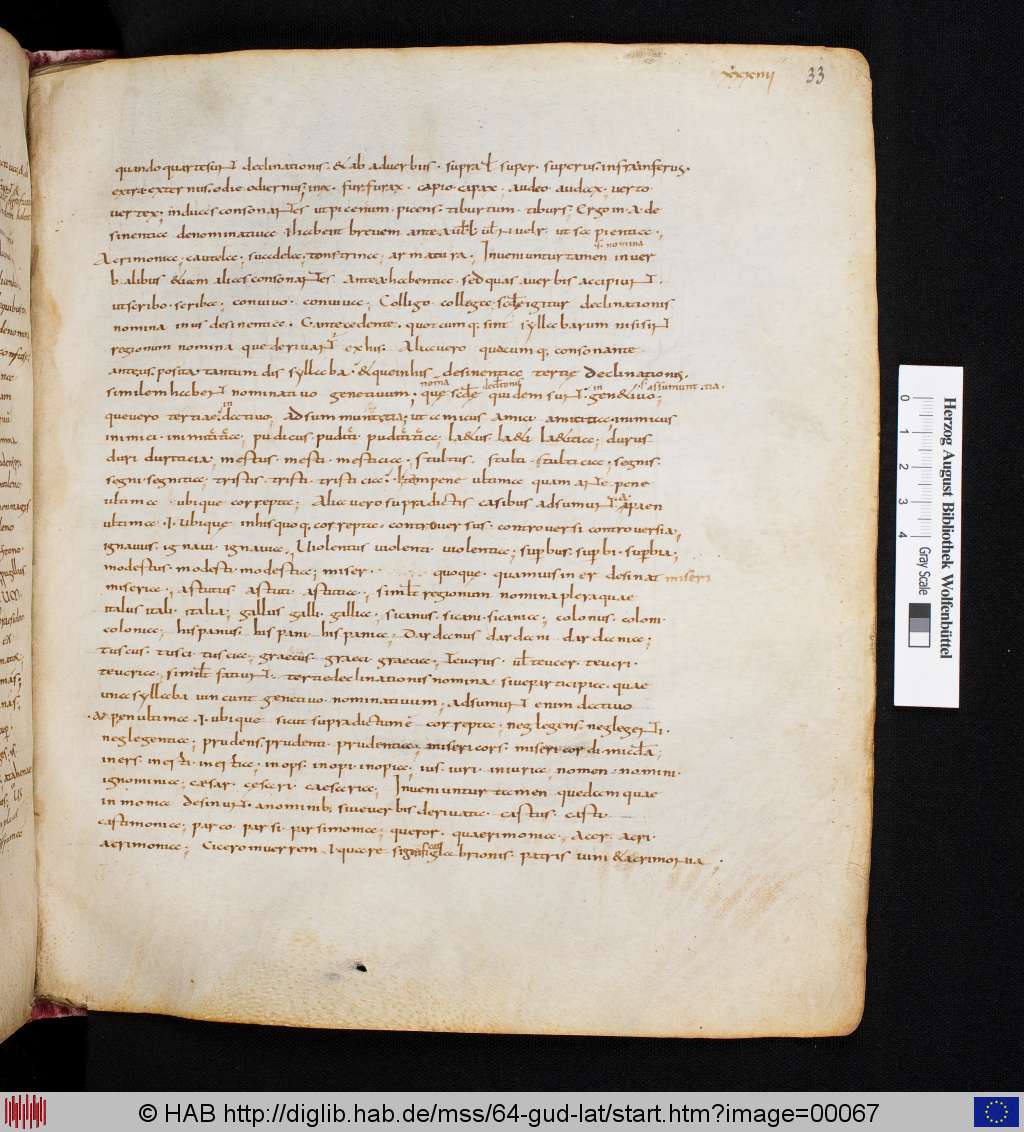 xxxiii 33
quando quartę sunt declinationis. & ab aduerbiis. supra l super. superus. infra inferus.
extra externus. odie odiernus; in ax. fur. furax. capio. capax. audeo audax. uerto
uertex; in duas consonantes ut picenum. picens. tiburtum. tiburs; Ergo in .A. de
sinentia denominatiua habent breuem ante ut sapientia;
Acrimonia; cautela; suadela; tonstrina; armatura; Inueniuntur tamen in uer
i. nomina
balibus &iam alias consonantes ante a habentia. sed quas a uerbis accipiunt.
ut scribo. scriba; conuiuo. conuiua; Colligo collega; igitur declinationis
nomina in us desinentia. antecedente. quotcumq; sint syllabarum nisi sint
regionum nomina que deriuant ex his. Alia uero quacumq; consonante
ante us. posita. tantum dissyllaba. & que in his desinentia tertię declinationis.
similem habent nominatiuo genetiuum; que quidem sunt. in gen&iuo;
assumunt .tia.
que uero tertiae. in datiuo; adsumunt tia; ut amicus amici amicitia; inimicus
inimici. inimicitiae; pudicus. pudici pudicitiae; la&us. la&i la&itia; durus
duri duritia; mestus. mesti. mesticia; stultus. stulti. stulticia; segnis.
segni. segnitia; tristis. tristi. tristicia; tam pene ultima quam ante pene
ultima ubique correpta; Alia uero supradictis casibus adsumunt a paen
ultima .i. ubique in his quoq; correpta. controuersus. controuersi controuersia;
ignauus. ignaui. ignauia; Uiolentus uiolenti. uiolentia; supbus. supbi. supbia;
modestus. modesti. modestia; miser. quoque. quamuis in er desinat miseri
miseria; astutus astuti. astutia; simil regionum nomina pleraque
italus itali. italia; gallus galli; gallia; sicanus. sicani. sicania; colonus. coloni.
colonia; hispanus. hispani hispania; Dardanus dardani dardania;
tuscus. tusci tuscia; graecus. graeci graecia; Teucrus. ul teucer. teucri.
teucria; simil fatiunt. tertię declinationis nomina. siue participia. quae
una syllaba uincunt genetiuo. nominatiuum; adsumunt enim datiuo
.a. penultima .i. ubique sicut supradictum ẽ correpta; neglegens. neglegenti.
neglegentia; prudens. prudenti. prudentia; misericors. misericordi.
iners. inerti. inertia; inops. inopi. inopia; ius. iuri. iniuria; nomen. nomini.
ignominia; cæsar. cęsari. caesaria; Inueniuntur tamen quedam quae
in monia desinunt. a nominib; siue uerbis deriuata. castus. casti
castimonia; parco. parsi. parsimonia; queror. quaerimonia; Acer. acri.
acrimonia; Cicero in uerrem patris uim & acrimonia;
0 1 2 3 4
Gray Scale
Herzog August Bibliothek Wolfenbüttel
© HAB http://diglib.hab.de/mss/64-gud-lat/start.htm?image=00067